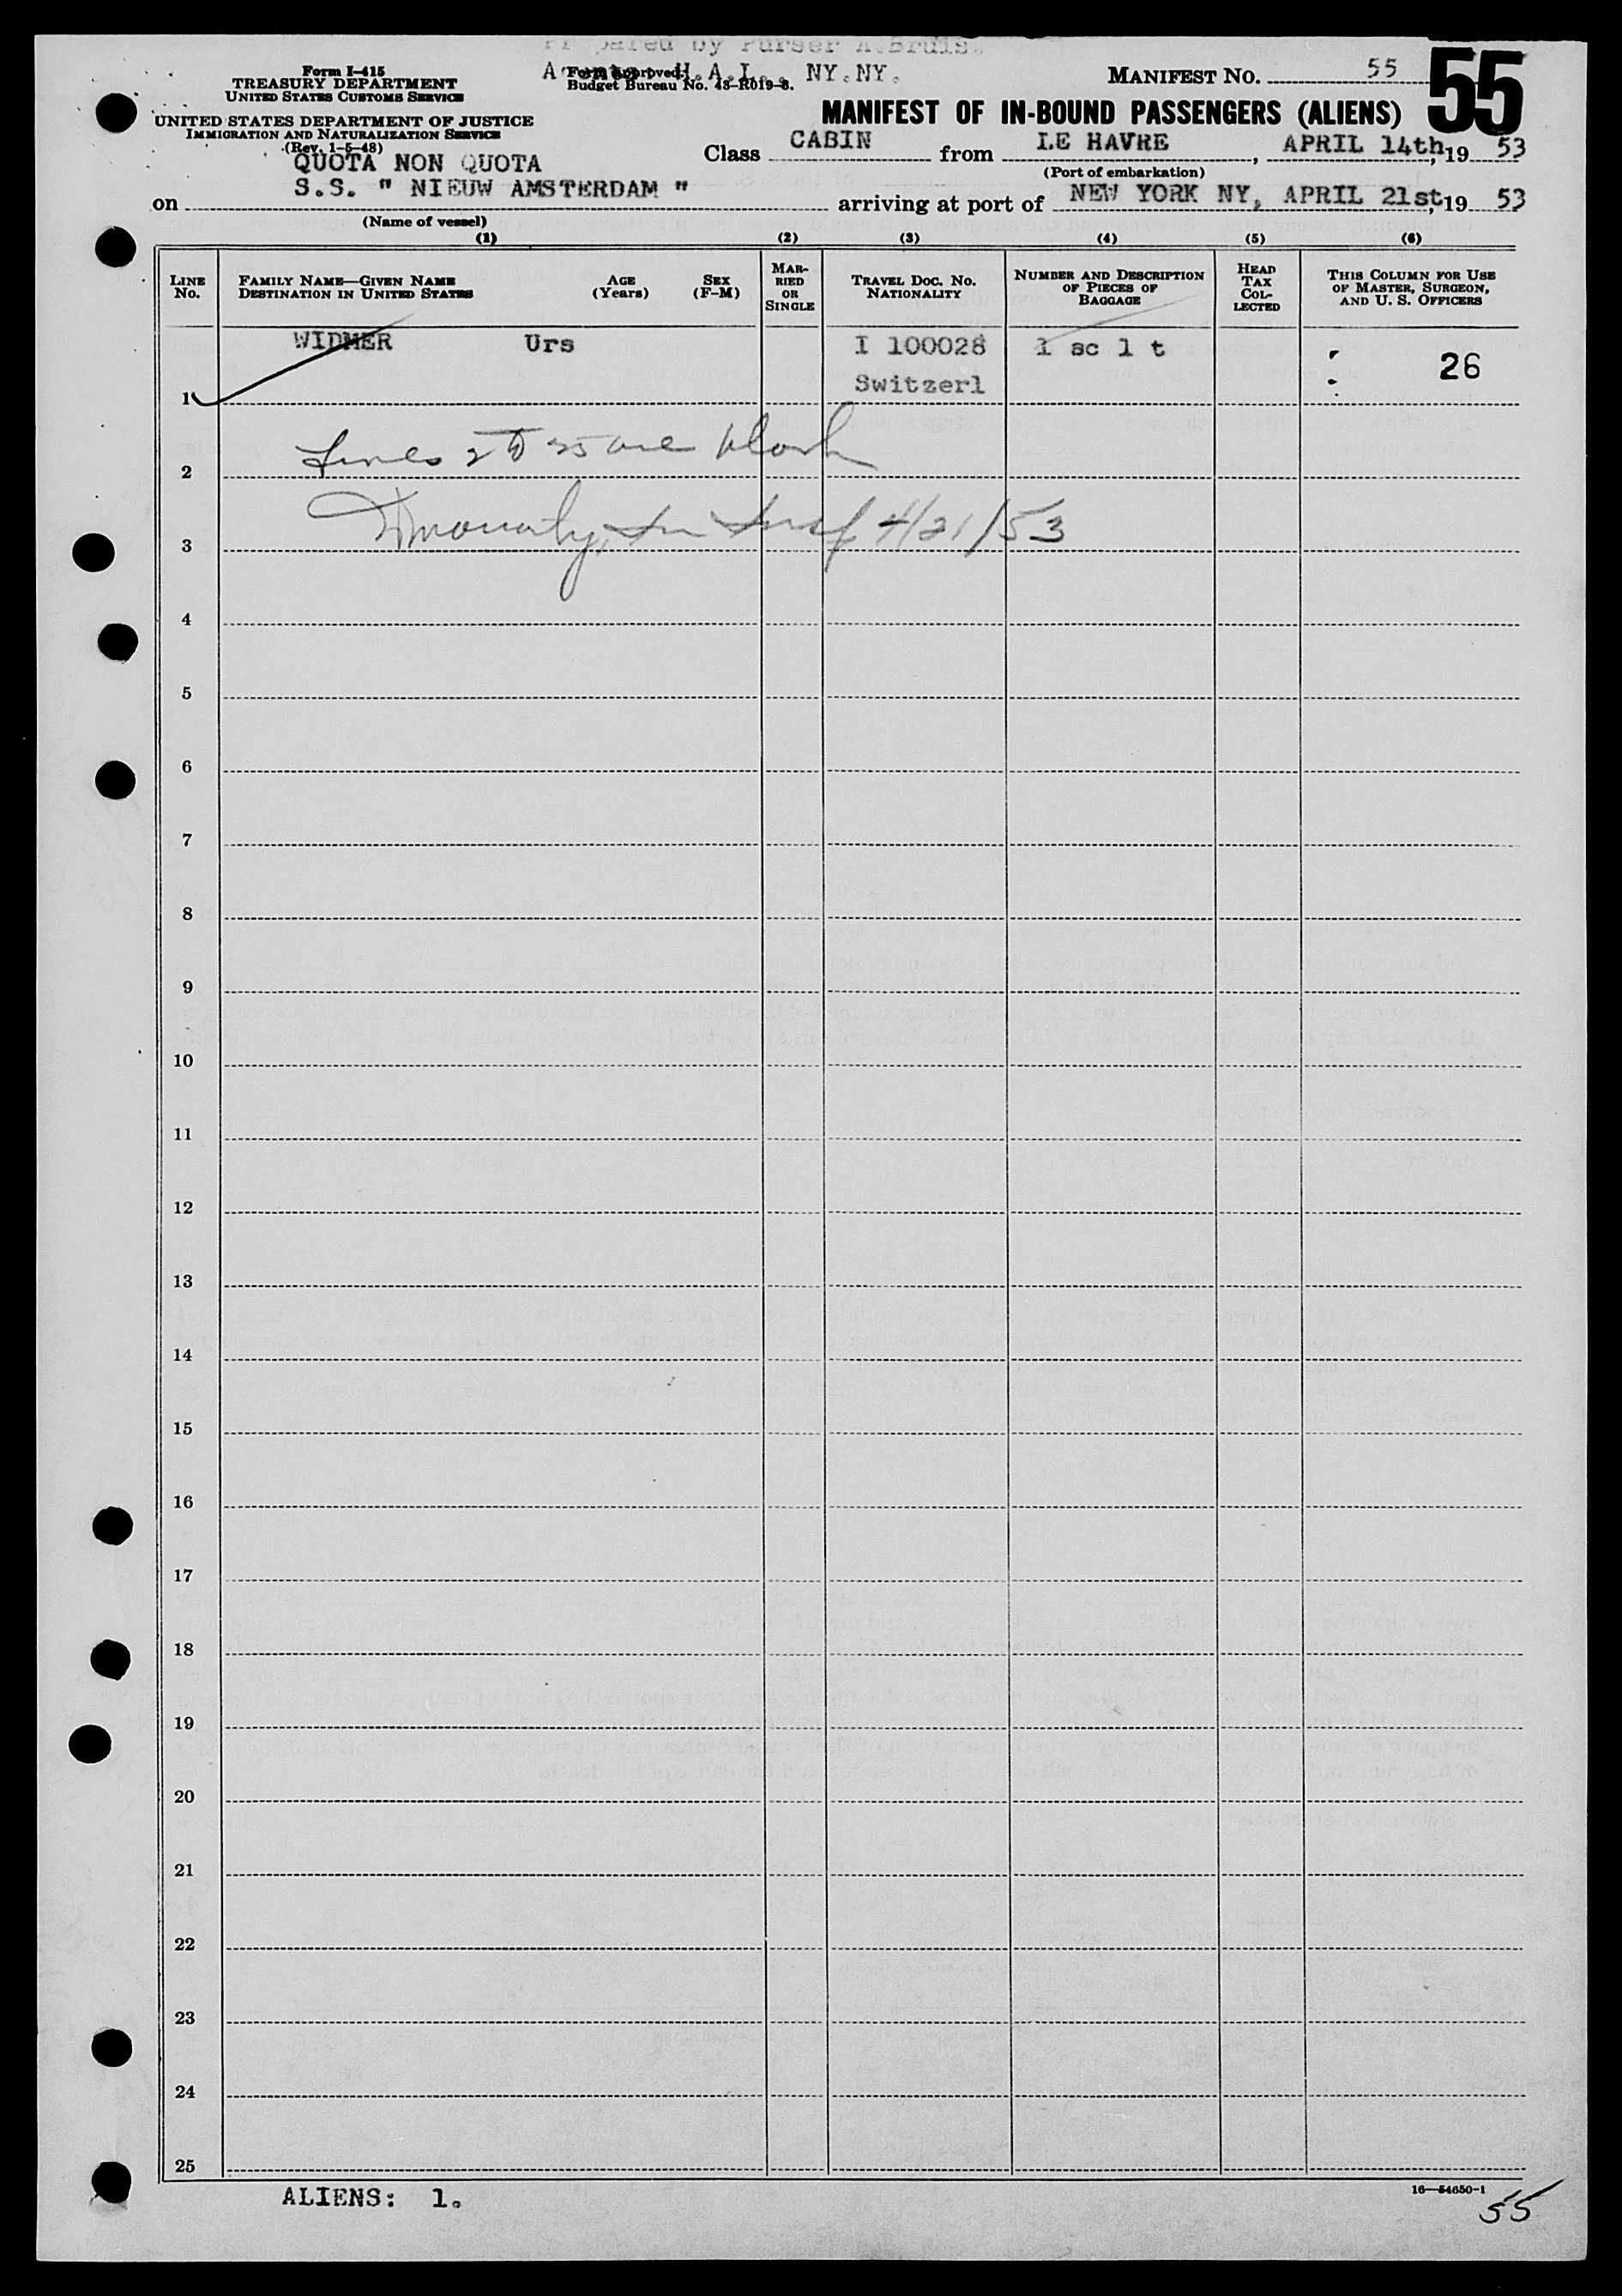 Prepared by Purser A.Bruis.
H.A.L., NY.NY.
Form I-415
TREASURY DEPARTMENT
UNITED STATES CUSTOMS SERVICE
UNITED STATES DEPARTMENT OF JUSTICE
IMMIGRATION AND NATURALIZATION SERVICE
(Rev. 1-5-48)
Form approved.
Budget Bureau No. 43-R019-3.
MANIFEST NO. 55
55
MANIFEST OF IN-BOUND PASSENGERS (ALIENS)
QUOTA NON QUOTA
Class CABIN from LE HAVRE, APRIL 14th, 19 53
(Port of embarkation)
on S.S. " NIEUW AMSTERDAM " arriving at port of NEW YORK NY, APRIL 21st, 19 53
(Name of vessel)
(1) (2) (3) (4) (5) (6)
LINE NO.
FAMILY NAME—GIVEN NAME
DESTINATION IN UNITED STATES
AGE (Years)
SEX (F-M)
MARRIED OR SINGLE
TRAVEL DOC. NO.
NATIONALITY
NUMBER AND DESCRIPTION OF PIECES OF BAGGAGE
HEAD TAX COLLECTED
THIS COLUMN FOR USE OF MASTER, SURGEON, AND U. S. OFFICERS
WIDMER Urs I 100028 1 sc 1 t 26
Switzerl
1
Lines 2 to 25 are blank
2
4/21/53
3
4
5
6
7
8
9
10
11
12
13
14
15
16
17
18
19
20
21
22
23
24
25
ALIENS: 1.
16—54650-1
55